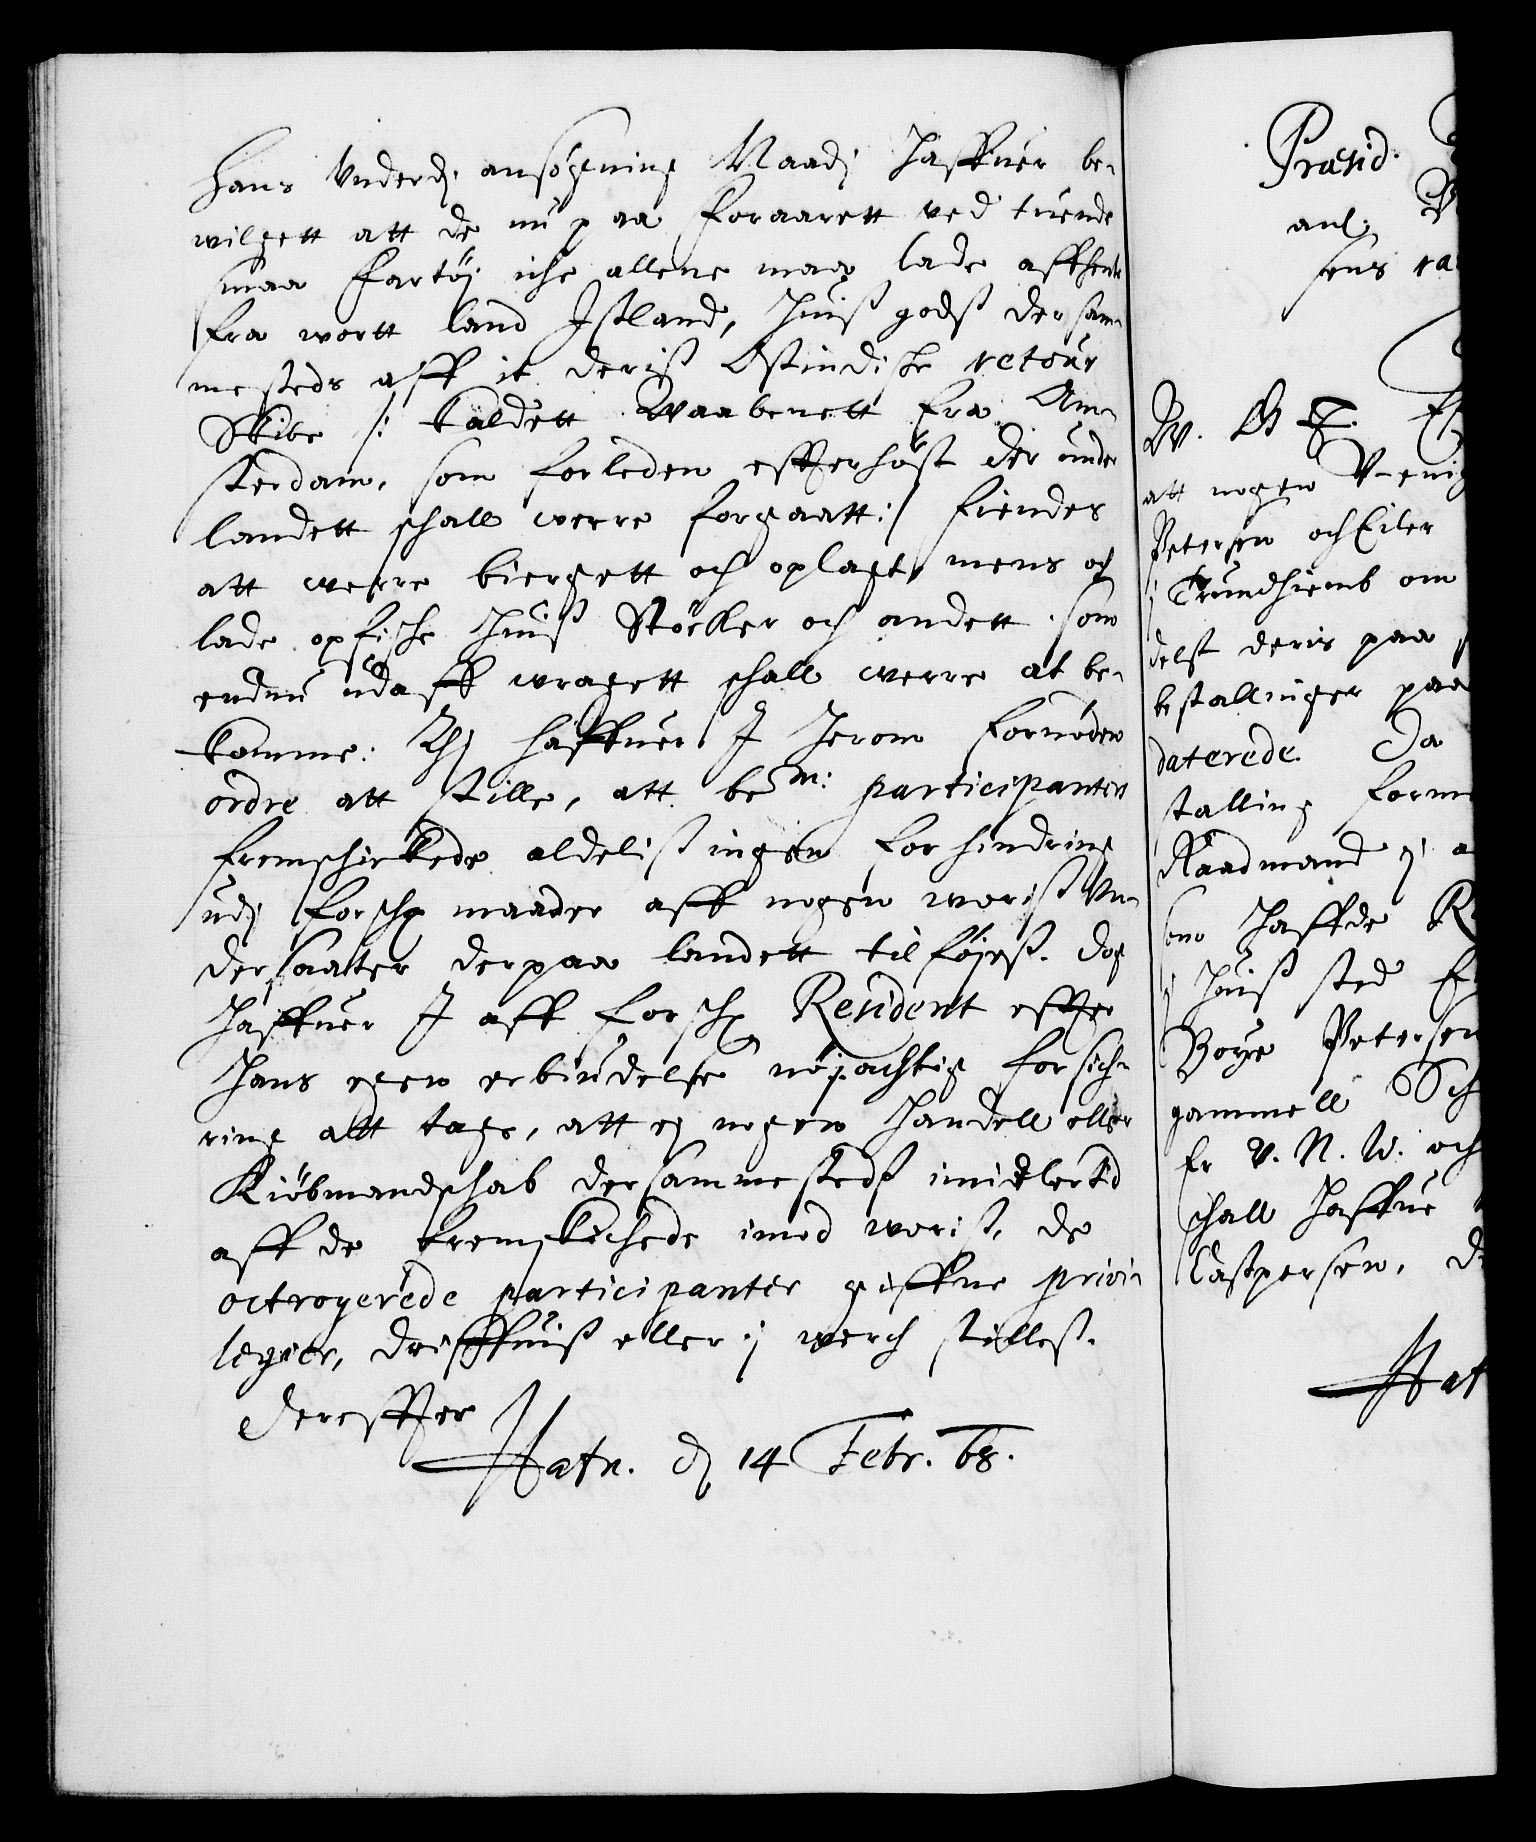 hans Underd: ansøgning Naad: haffuer be-
wilgett att de nu paa Foraarett ved tuende
smaa Fartøj iche allene maa lade affhente
fra wortt land Jsland, huis godß der sam-
mesteds aff it deriß Ostindische retour
Skibe /: kaldett Waabenett fra Am-
sterdam, som forleden effterhøst der under
landett schall werre forgaatt :/ findes
att werre biergett och oplagt, mens och
lade opfische huiß Støcker och andett som
endnu udaff wragett schall werre at be-
komme: Thj haffuer J herom fornøden
ordre att stille, att bem: participanters
fremschickede aldeliß ingen forhindring
udj forsch maader aff nogen woriß Un-
dersaater derpaa landett tilføjeß. dog
haffuer J aff forsch Resident effter
hans egen erbiudelse nøjachtig forsich-
ring att tage, att ej nogen handell eller
Kiøbmandschab dersammestedß imidlertid
aff de fremskichede imod woriß, de
octroyerede participanter giffne privi-
legier, driffuiß eller j werch stilleß.
Dereffter
Hafn. d 14 Febr. 68.
Præsid:
anl:
sens
W. G T.
att nogen Uenig
Petersen och Eiler
j Trundhiemb om
delst deris paa
bestallinger paa
daterede. Da
stalling form
Raadmand j a
som haffde R
j huiß sted E
Boye Petersen
gammell Sch
Er V. N. W. och
schall haffue
Caspersen, d
Haf